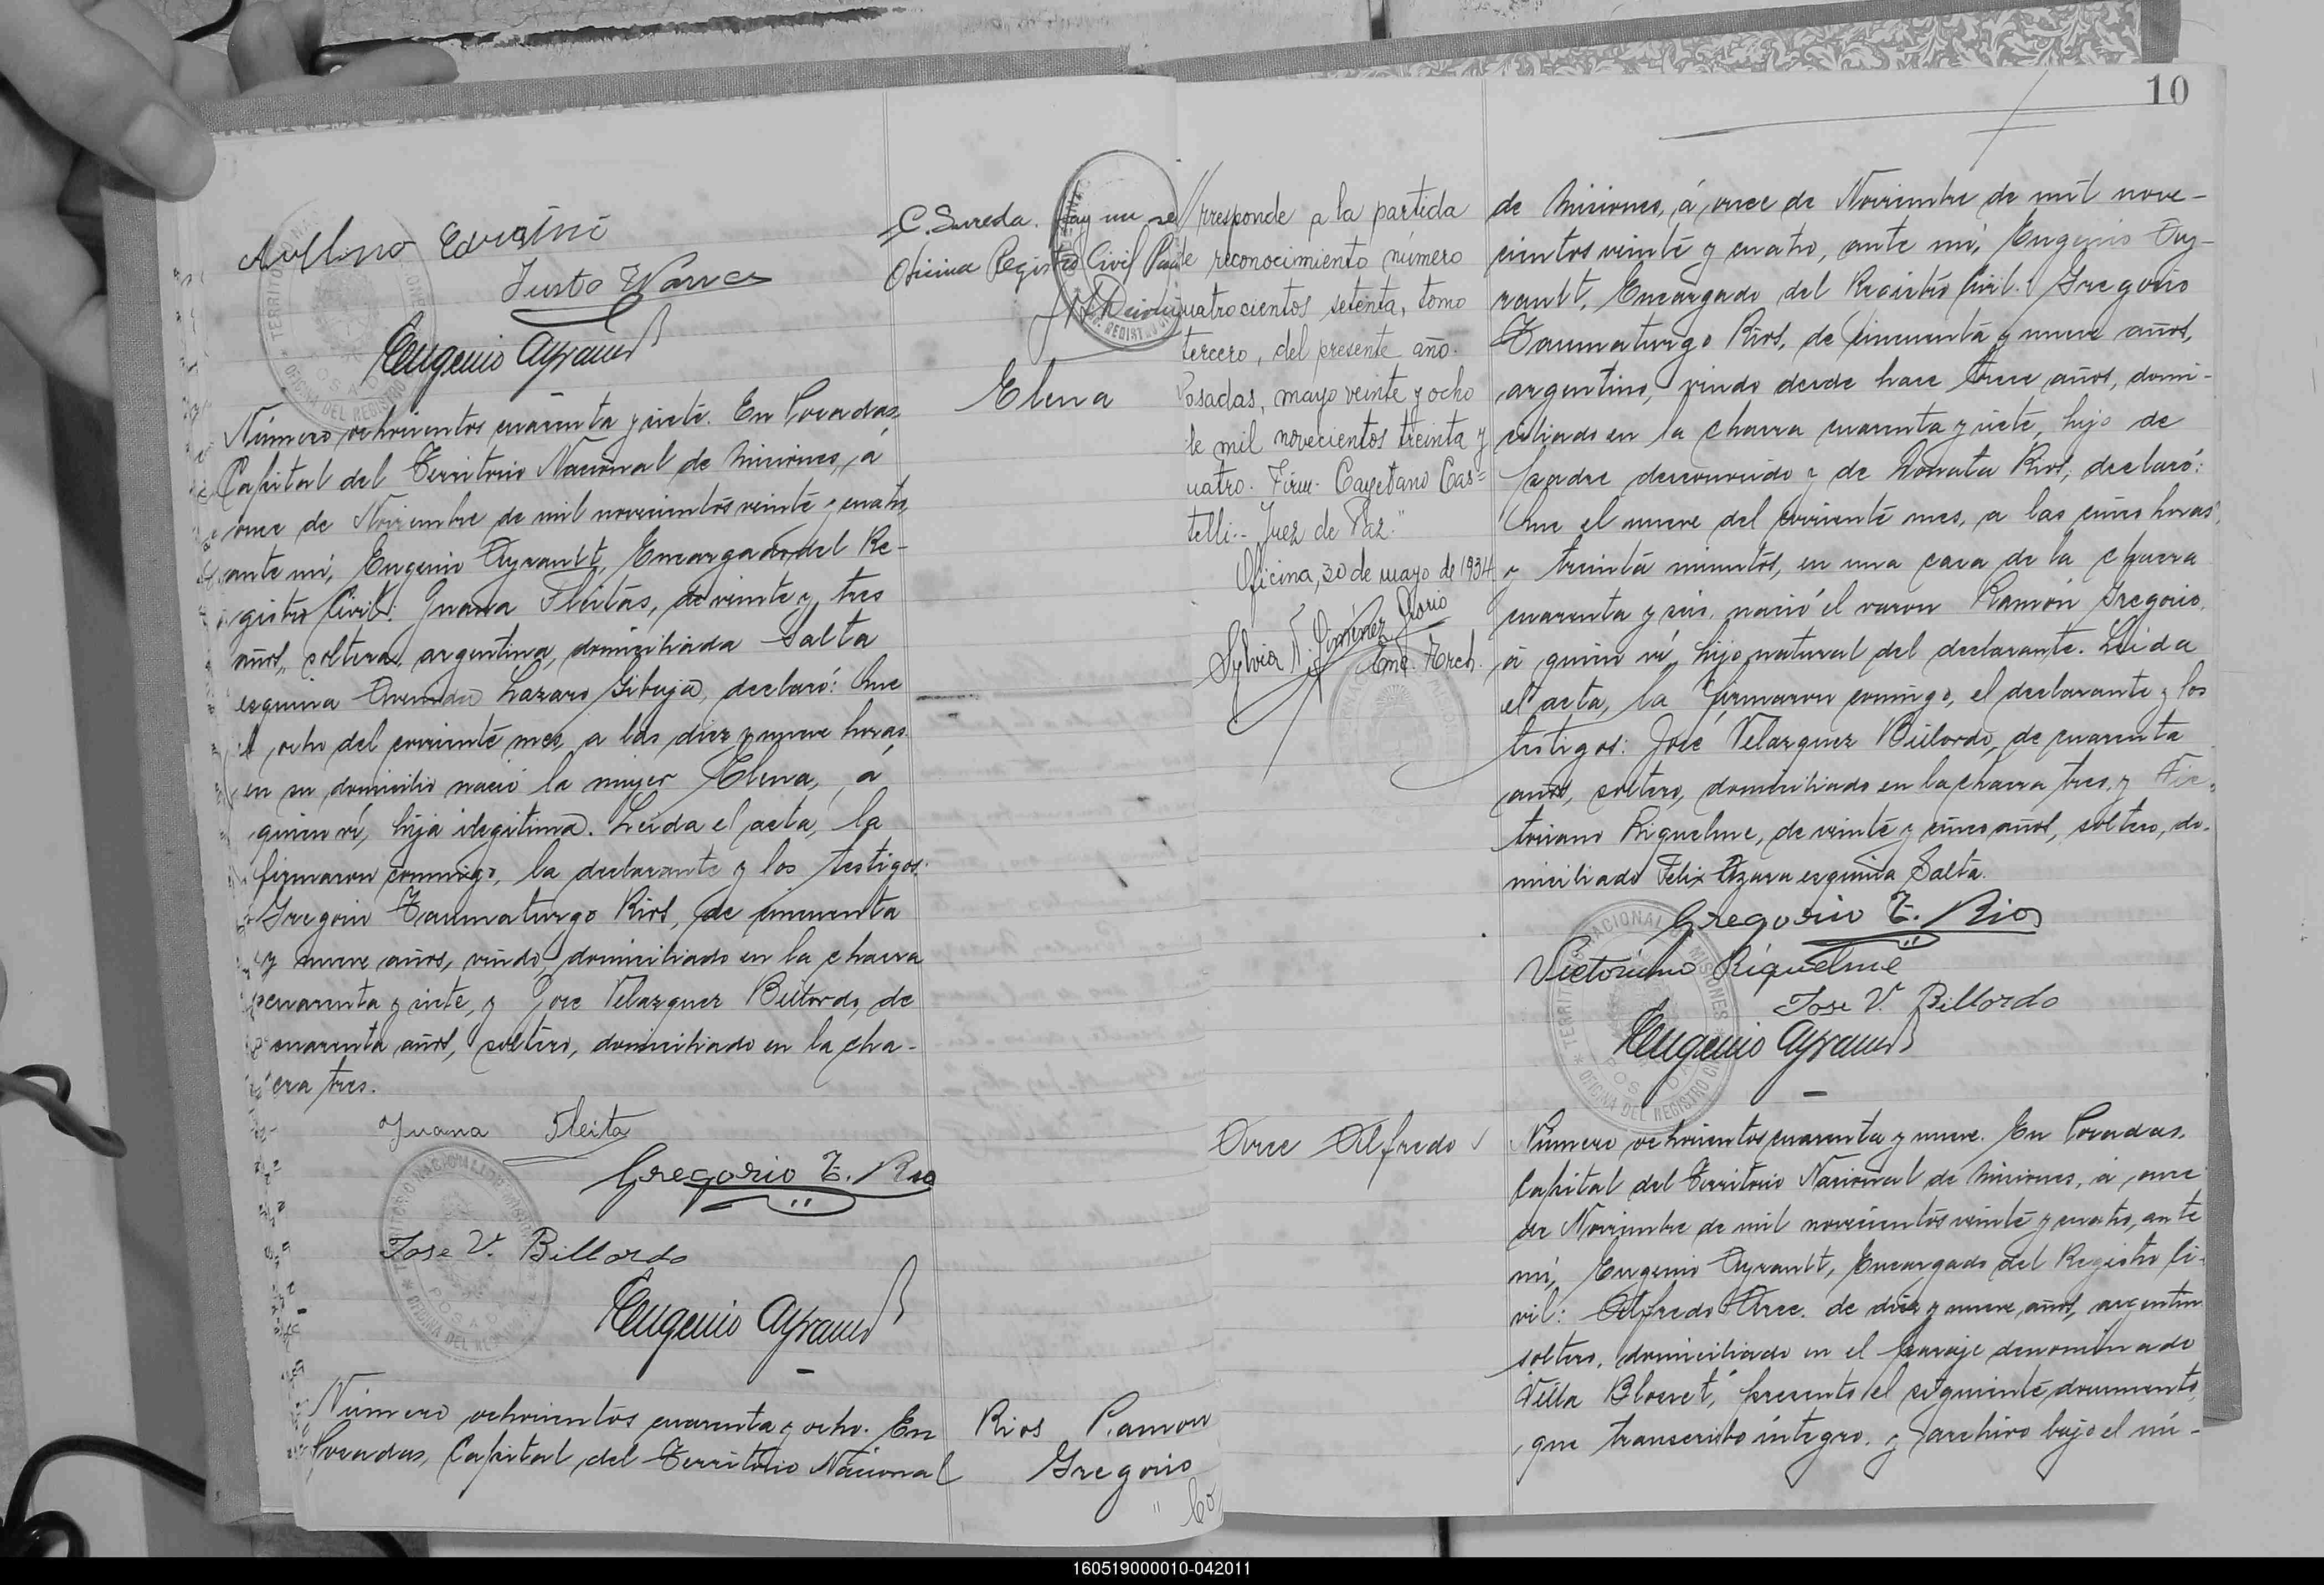 Avelino
Justo
Eugenio Ayrault
C. Sureda. Hay un se
Oficina Registro Civil
Elena
Número ochocientos cuarenta y siete. En Posadas,
Capital del Territorio Nacional de Misiones, á
once de Noviembre de mil novecientos veinte y cuatro,
ante mí, Eugenio Ayrault, Encargado del Re-
gistro Civil: Juana Fleitas, de veinte y tres
años, soltera, argentina, domiciliada Salta
esquina Avenida Lazaro Gibaja, declaró: Que
el ocho del corriente mes, a las diez y nueve horas
en su domicilio nació la mujer Elena, á
quien ví, hija ilegitima. Leida el acta, la
firmaron conmigo, la declarante y los testigos:
Gregorio Taumaturgo Rios, de cincuenta
y nueve años, viudo, domiciliado en la chacra
cuarenta y siete, y José Velazquez Billordo, de
cuarenta años, soltero, domiciliado en la cha-
cra tres.
Juana Fleita
Gregorio T. Rios
Jose V. Billordo
Eugenio Ayrault
Número ochocientos cuarenta y ocho. En
Posadas, Capital del Territorio Nacional
Rios Ramon
Gregorio
" Co
10
//rresponde a la partida
de reconocimiento número
cuatrocientos setenta, tomo
tercero, del presente año.
Posadas, mayo veinte y ocho
de mil novecientos treinta y
cuatro. Firm. Cayetano Cas=
telli.- Juez de Paz."
Oficina, 30 de mayo de 1934
Sylvia N. Jiménez Osorio
Enc. Arch.
de Misiones, á once de Noviembre de mil nove-
cientos veinte y cuatro, ante mí, Eugenio Ay-
rault, Encargado del Registro Civil: Gregorio
Taumaturgo Rios, de cincuenta y nueve años,
argentino, viudo desde hace trece años, domi-
ciliado en la chacra cuarenta y siete, hijo de
padre desconocido y de Donata Rios, declaró:
Que el nueve del corriente mes, a las cinco horas
y treinta minutos, en una casa de la chacra
cuarenta y seis, nació el varon Ramón Gregorio,
á quien ví, hijo natural del declarante. Leida
el acta, la firmaron conmigo, el declarante y los
testigos: José Velazquez Billordo, de cuarenta
años, soltero, domiciliado en la chacra tres, y Vic-
toriano Riquelme, de veinte y cinco años, soltero, do-
miciliado Felix Azara esquina Salta.
Gregorio T. Rios
Victoriano Riquelme
Jose V. Billordo
Eugenio Ayrault
Arce Alfredo
Número ochocientos cuarenta y nueve. En Posadas,
Capital del Territorio Nacional de Misiones, á once
de Noviembre de mil novecientos veinte y cuatro, ante
mí, Eugenio Ayrault, Encargado del Registro Ci-
vil: Alfredo Arce, de diez y nueve años, argentino
soltero, domiciliado en el paraje denominado
"Villa Blosset," presentó el siguiente documento,
que transcribo íntegro, y archivo bajo el nú-
160519000010-042011